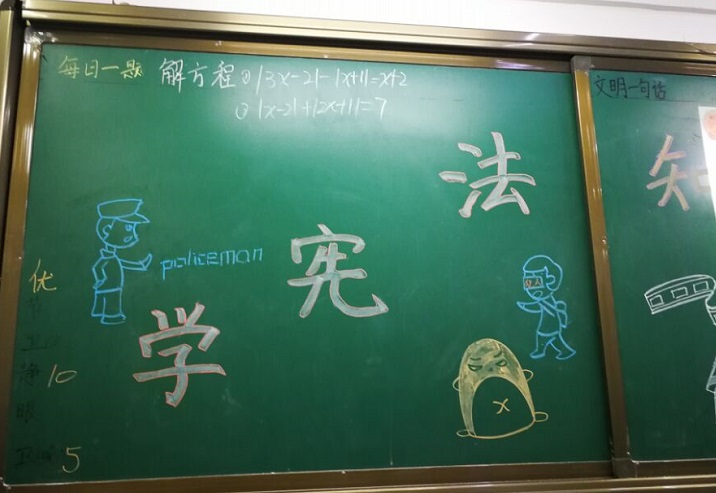 每日一题 解方程 ① |3x-2|-|x+1|=x+2
② |x-2|+|2x+1|=7
文明一句话
法
知
policeman
宪
学
优
卫
静 10
5
x